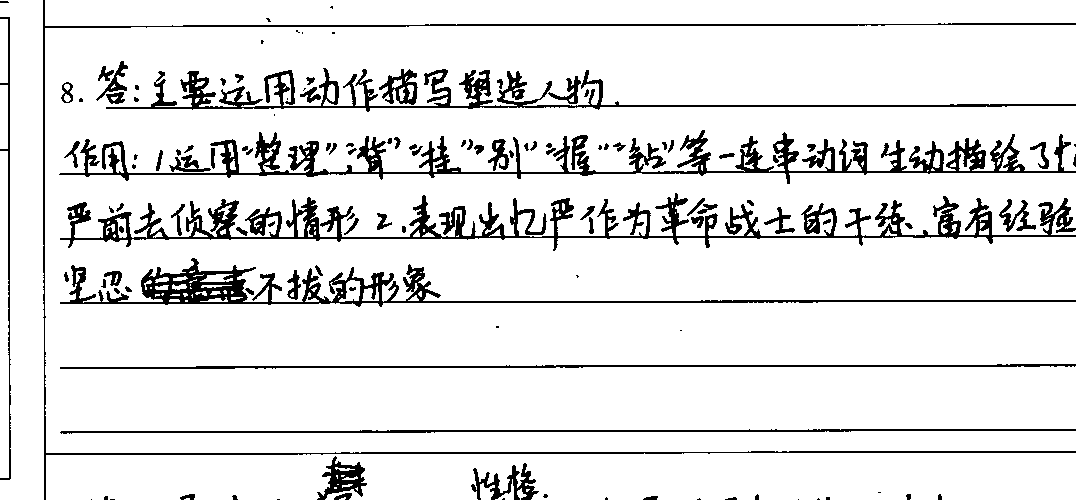 8. 答:主要运用动作描写塑造人物.
作用: 1.运用“整理”“背”“挂”“别”“握”“钻”等一连串动词生动描绘了忆
严前去侦察的情形 2.表现出忆严作为革命战士的干练、富有经验
坚忍不拔的形象
性格.